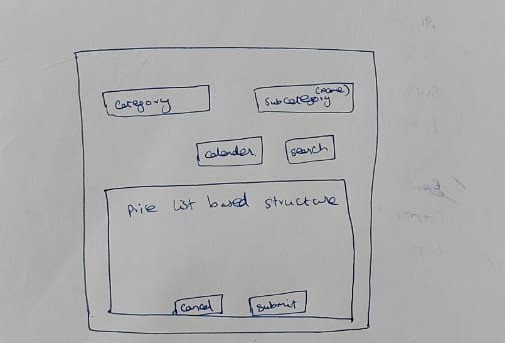 Category
(name)
Subcategory
Calender
Search
Price list based structure
Cancel
Submit